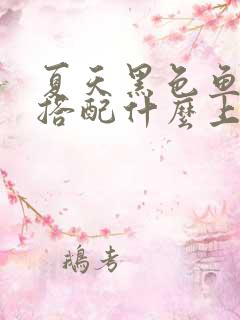 夏天黑色鱼
搭配什麼上
鵝考